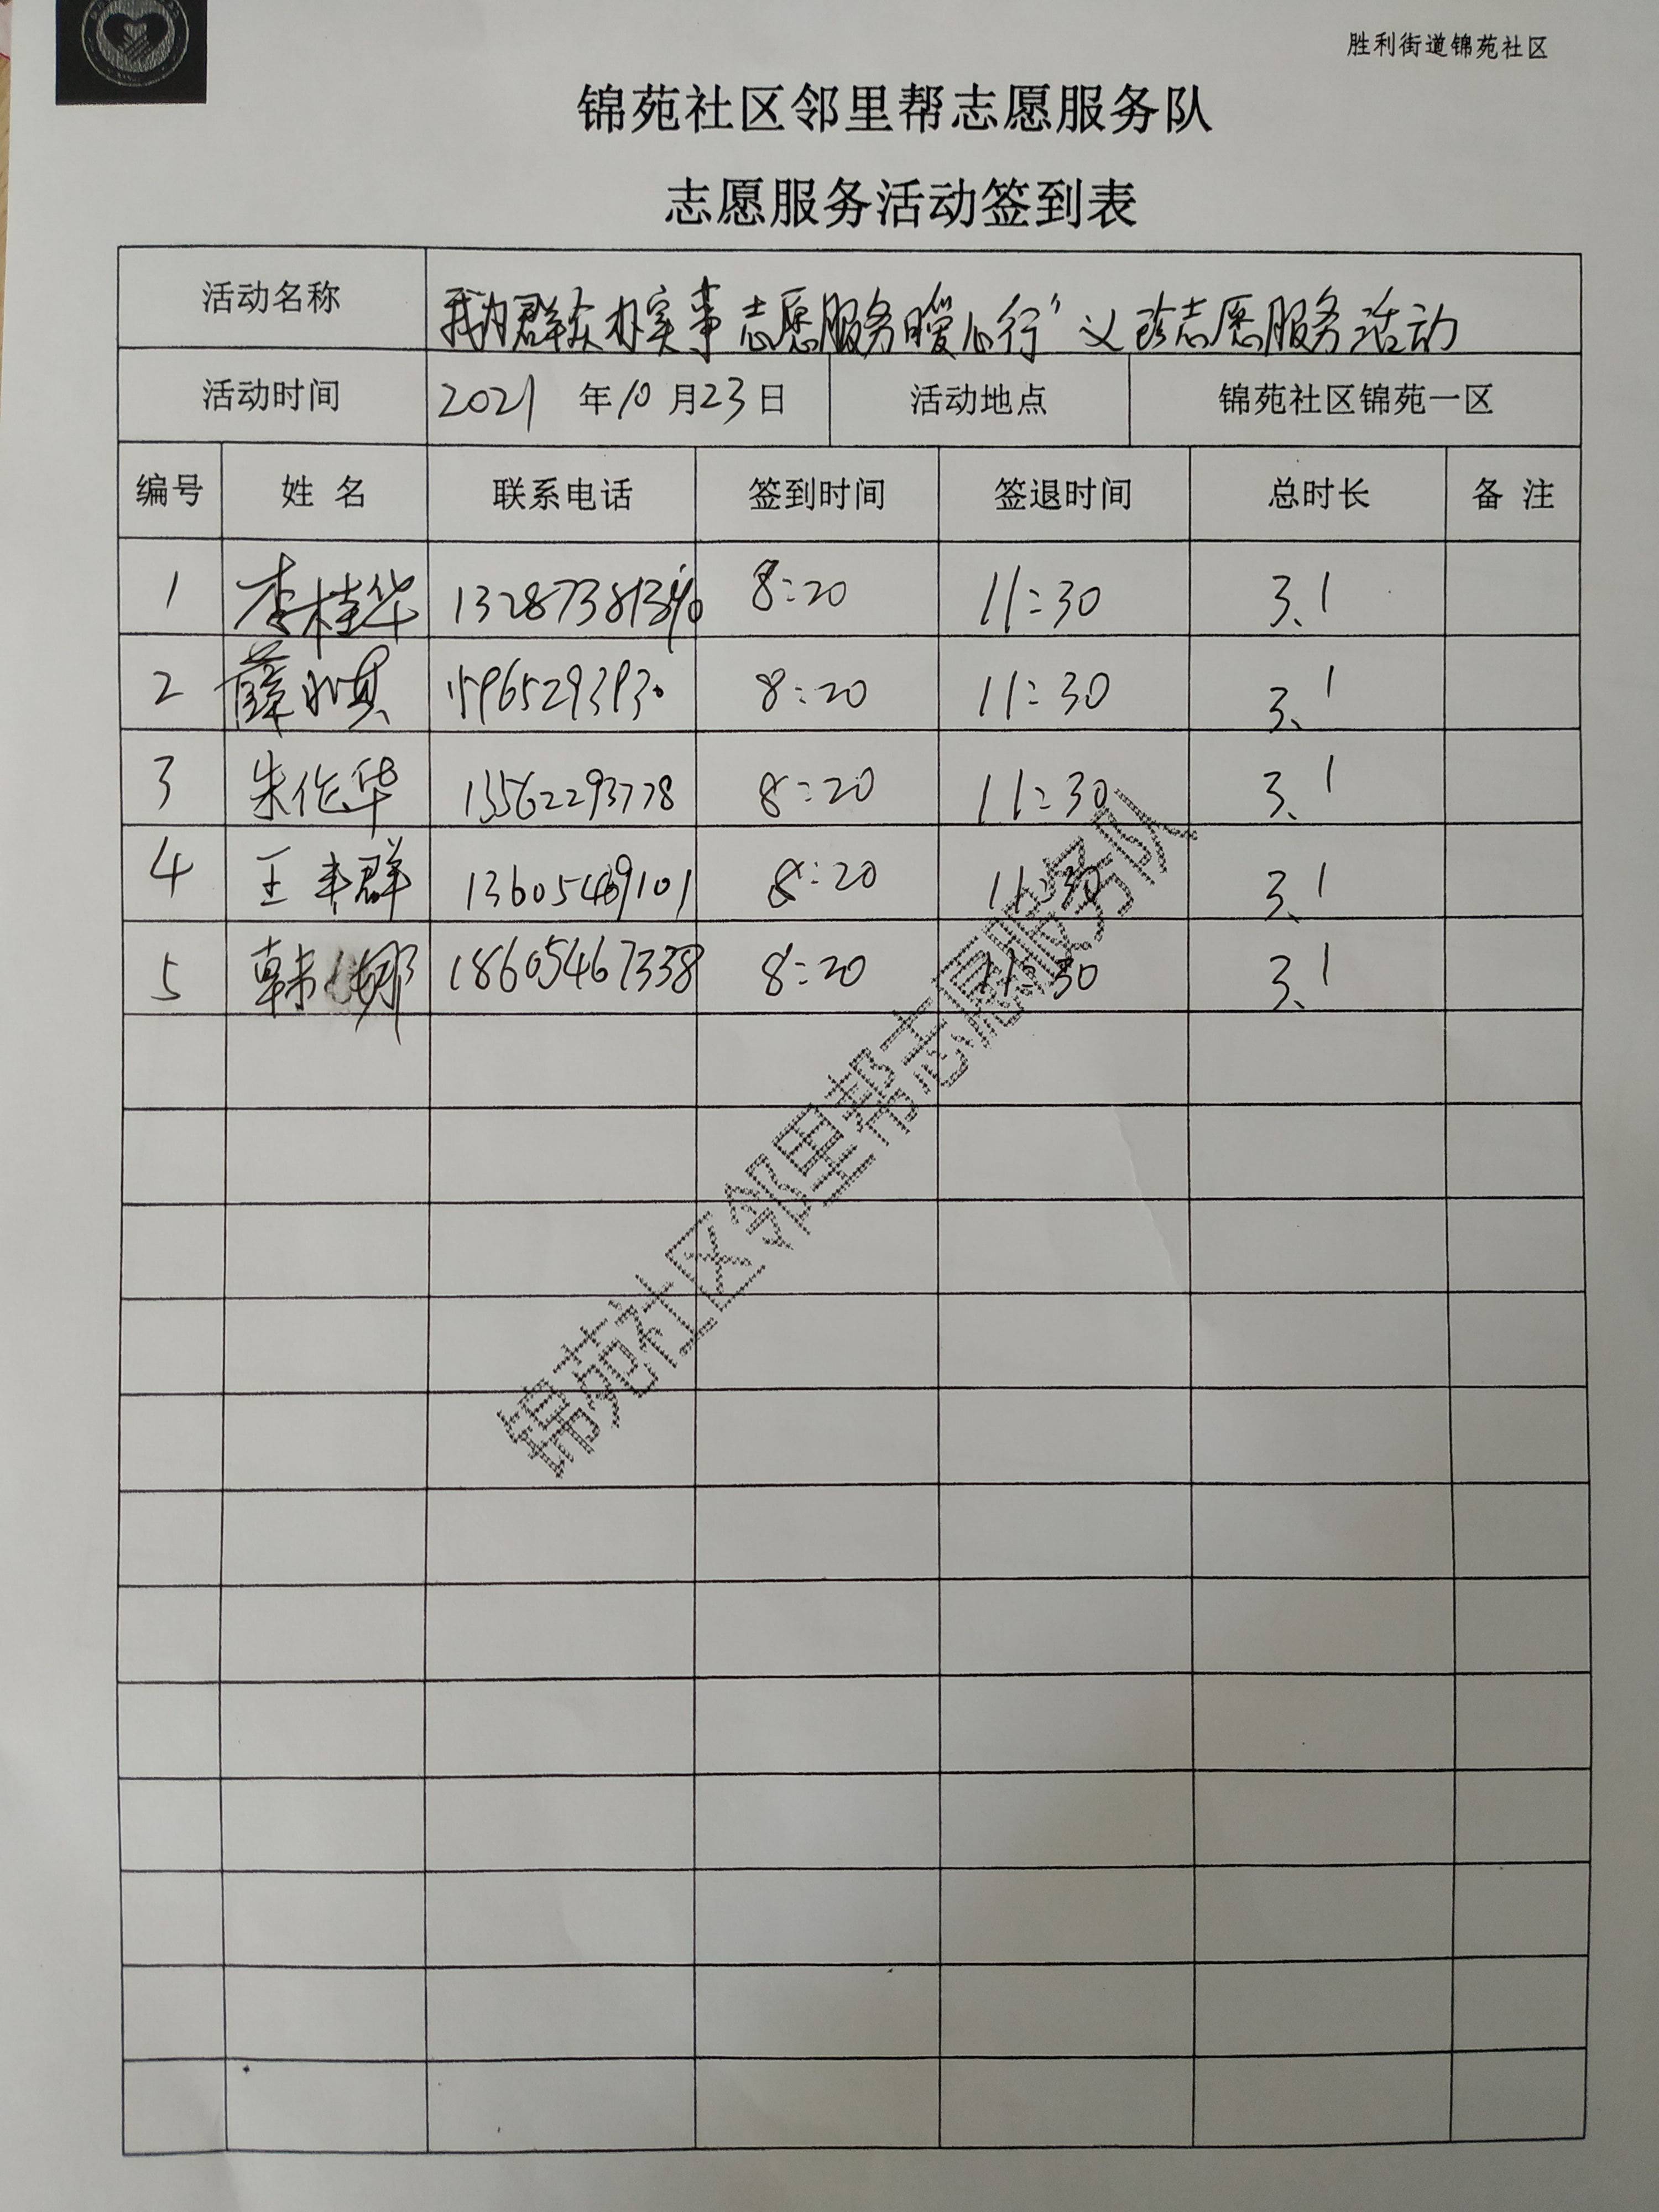 胜利街道锦苑社区
锦苑社区邻里帮志愿服务队
志愿服务活动签到表
活动名称 我为群众办实事 志愿服务暖心行" 义诊志愿服务活动
活动时间 2021 年 10 月 23 日 活动地点 锦苑社区锦苑一区
编号 姓 名 联系电话 签到时间 签退时间 总时长 备 注
1 李桂华 8:20 11:30 3.1
2 15965293930 8:20 11:30 3.1
3 朱作华 13562293778 8:20 11:30 3.1
4 王丰群 13605469101 8:20 11:30 3.1
5 18605467338 8:20 11:30 3.1
锦苑社区邻里帮志愿服务队